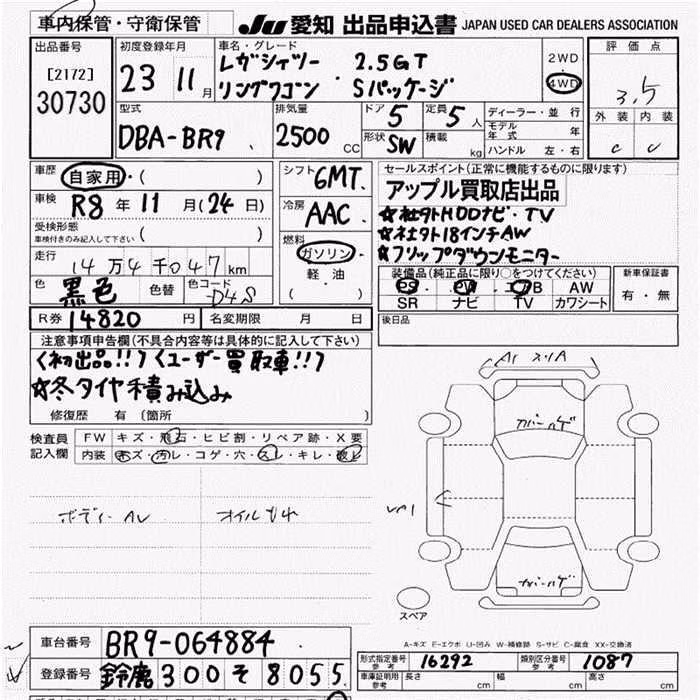 車内保管・守衛保管 JU 愛知 出品申込書 JAPAN USED CAR DEALERS ASSOCIATION
出品番号 [2172] 30730
初度登録年月 23 11月
車名・グレード レガシィツー 2.5GT
リングワゴン Sパッケージ
2WD・4WD
評価点 3.5
外装 内装
C C
型式 DBA-BR9
排気量 2500 CC
ドア 5 定員 5人
形状 SW 積載 kg
ディーラー・並行
モデル年式 年
ハンドル 左・右
車歴 自家用・( )
車検 R8年 11月(24日)
受検形態 車検付きのみ記入して下さい ( )
走行 14万4千047km
色 黒色 色替 色コード D4S
シフト 6MT
冷房 AAC
燃料 ガソリン・軽油
( )
セールスポイント(正常に機能するものに限ります)
アップル買取店出品
☆社外HDDナビ・TV
☆社外18インチAW
☆フリップダウンモニター
装備品(純正品に限り○をつけてください)
PS PW エアB AW
SR ナビ TV カワシート
新車保証書
有・無
R券 14820円 名変期限 月 日
後日品
注意事項申告欄(不具合内容等は具体的に記入して下さい)
<初出品!!><ユーザー買取車!!>
☆冬タイヤ積み込み
修復歴 有 (箇所 )
検査員記入欄
FW キズ・飛石・ヒビ割・リペア跡・X要
内装 キズ・汚レ・コゲ・穴・スレ・キレ・破レ
ボディーAU
A1 スリA
カバーハゲ
カバーハゲ
スペア
A-キズ E-エクボ U-凹み W-補修跡 S-サビ C-腐食 XX-交換済
車台番号 BR9-064884
登録番号 鈴鹿 300 そ 8055
形式指定番号 参考 16292 類別区分番号 参考 1087
車庫証明用 参考 長さ cm 幅 cm 高さ cm